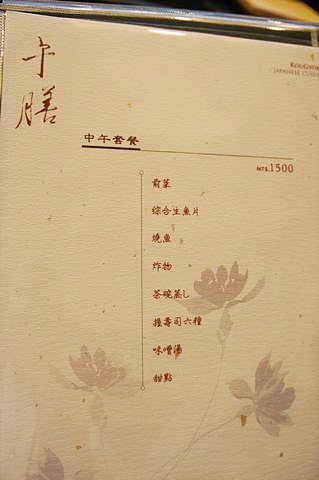 午膳
JAPANESE CUISI
中午套餐
NT$.1500
前菜
綜合生魚片
燒魚
炸物
茶碗蒸し
握壽司六種
味噌湯
甜點